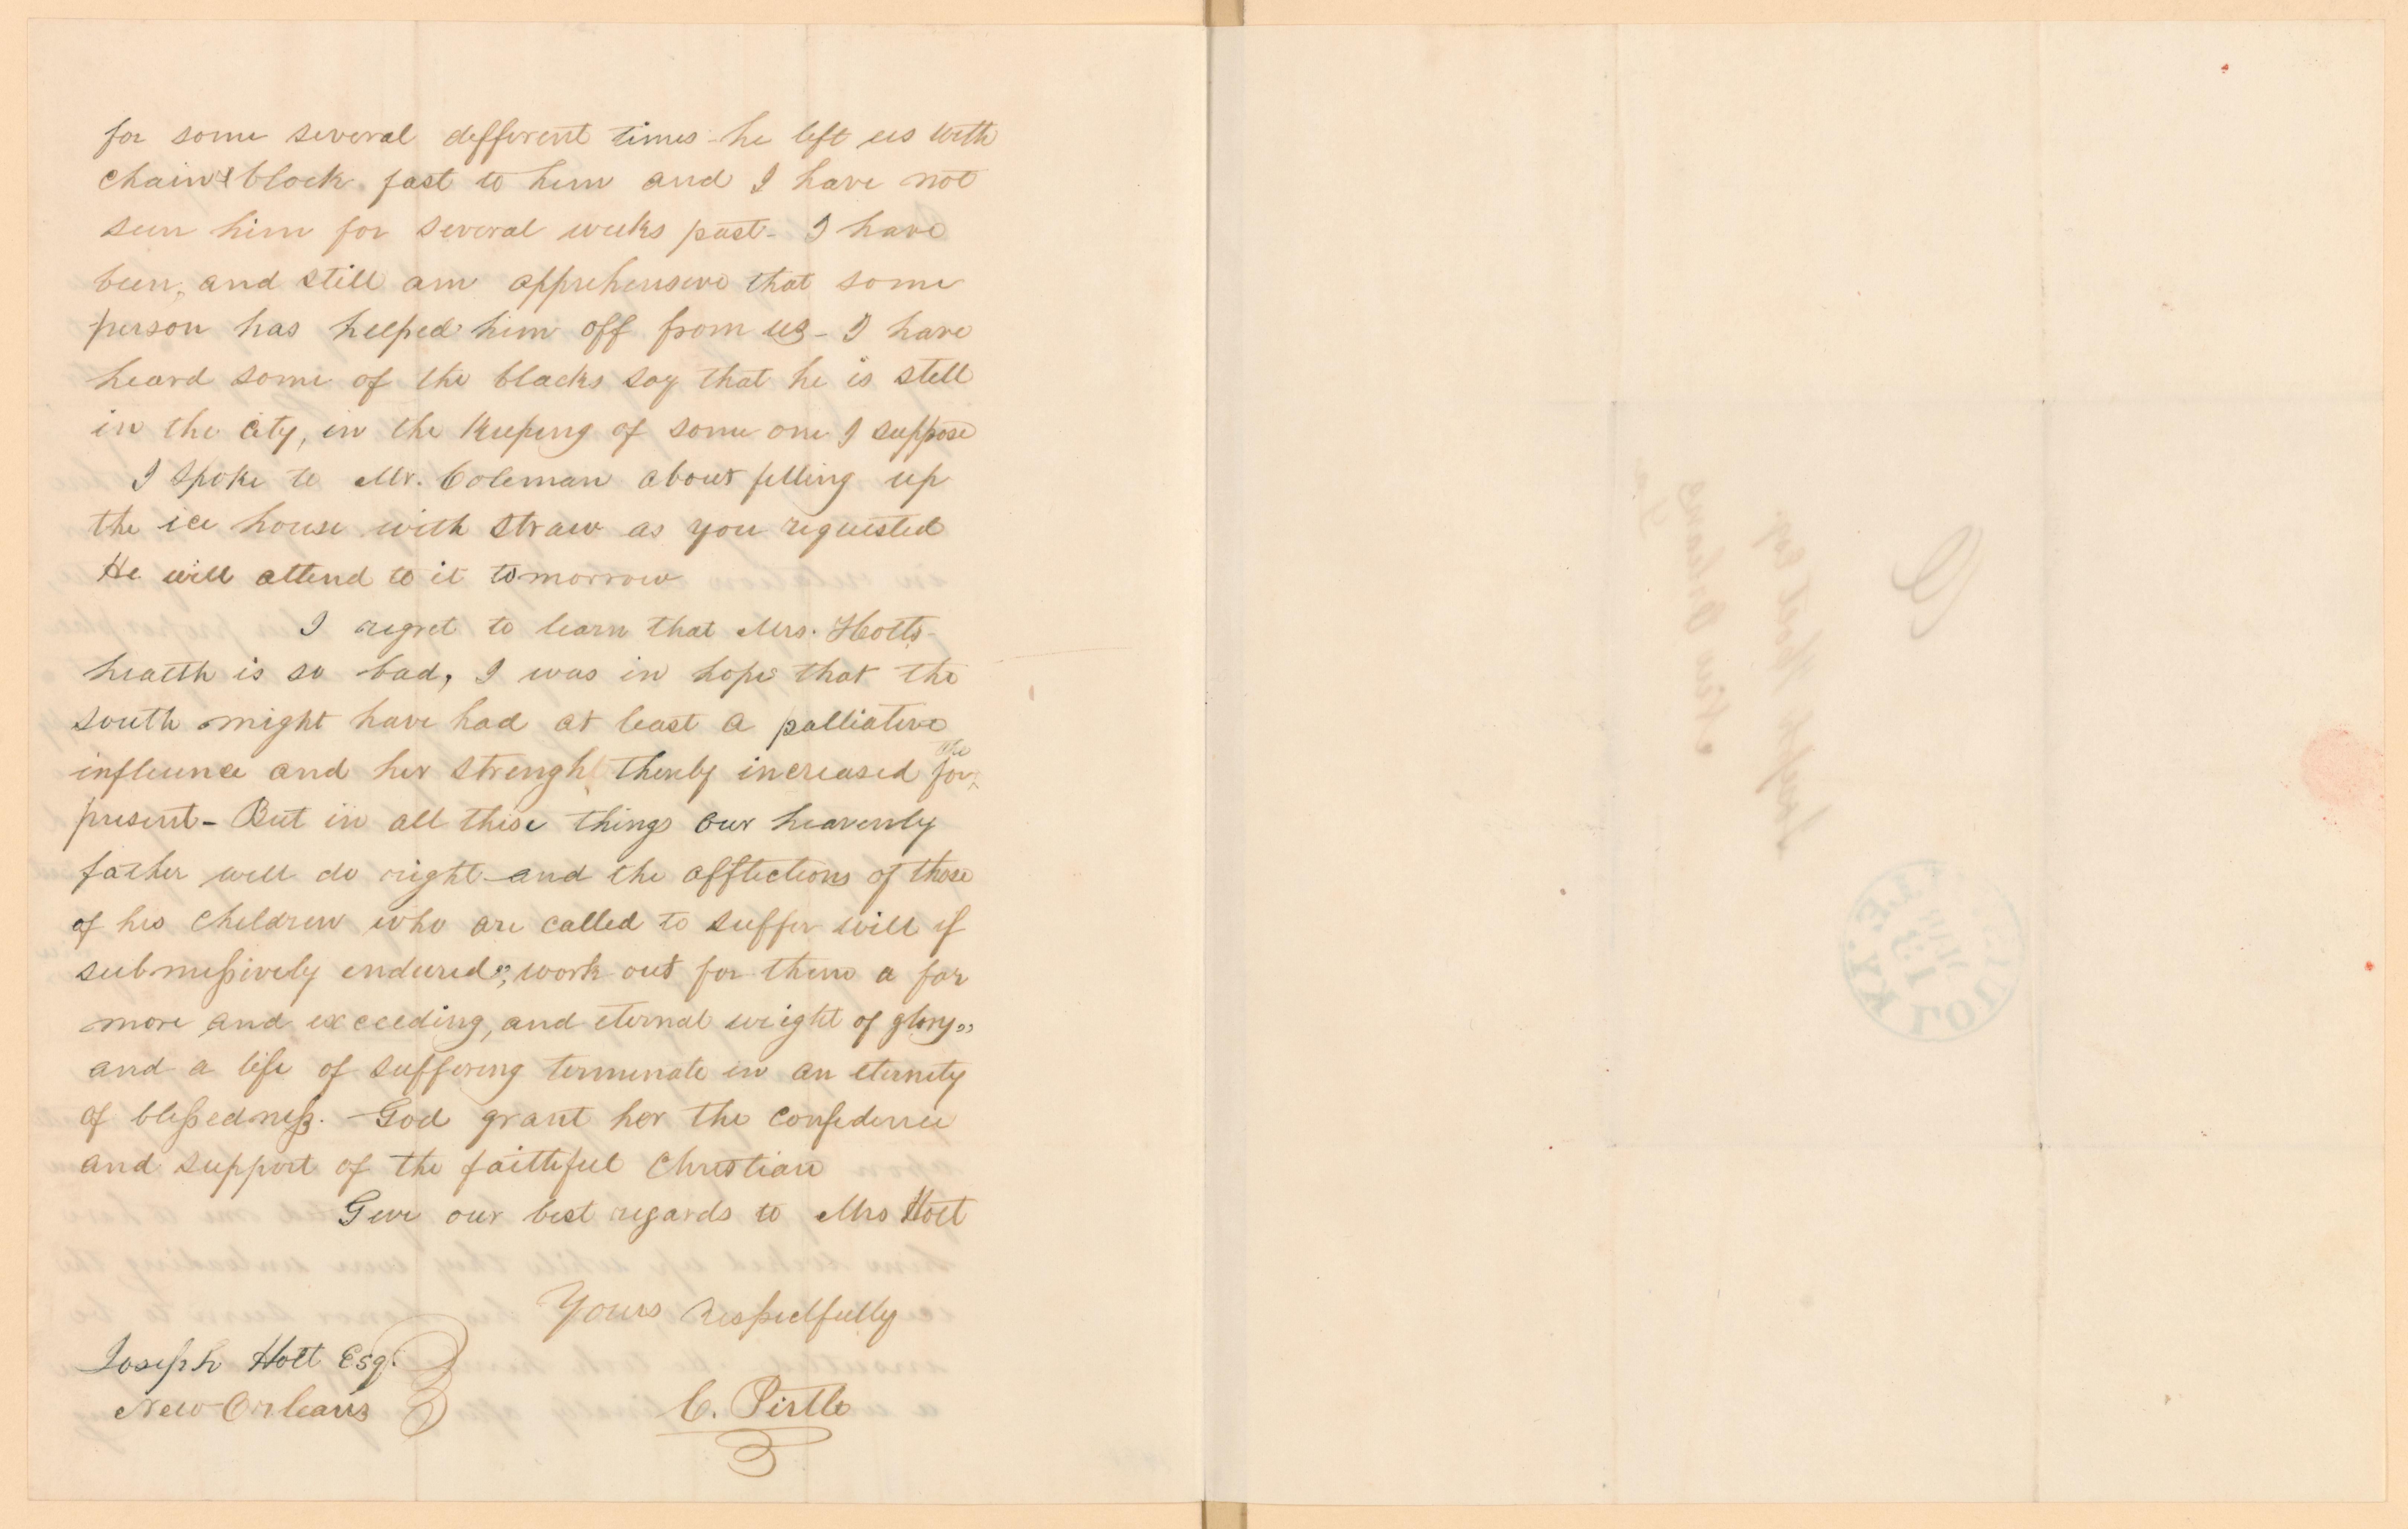 for some several defferent times - he left us with
chain & block fast to him and I have not
seen him for several weeks past - I have
been, and still am apprehensive that some
person has helped him off from us - I have
heard some of the blacks say that he is still
in the city, in the keeping of some one I suppose
I spoke to Mr. Coleman about filling up
the ice house with straw as you requested
He will attend to it tomorrow
I regret to learn that Mrs. Holts
health is so bad, I was in hope that the
south might have had at least a palliative
influence and her strenght thereby increased for the
present - But in all these things our heavenly
father will do right - and the afflictions of those
of his children who are called to suffer will if
submissively endured ", work out for them a far
more and exceeding, and eternal weight of glory"
and a life of suffering terminate in an eternity
of blessedness. - God grant her the confidence
and support of the faithful Christian
Give our best regards to Mrs Holt
Yours respectfully
Joseph Holt Esq.
New Orleans
C. Pirtle